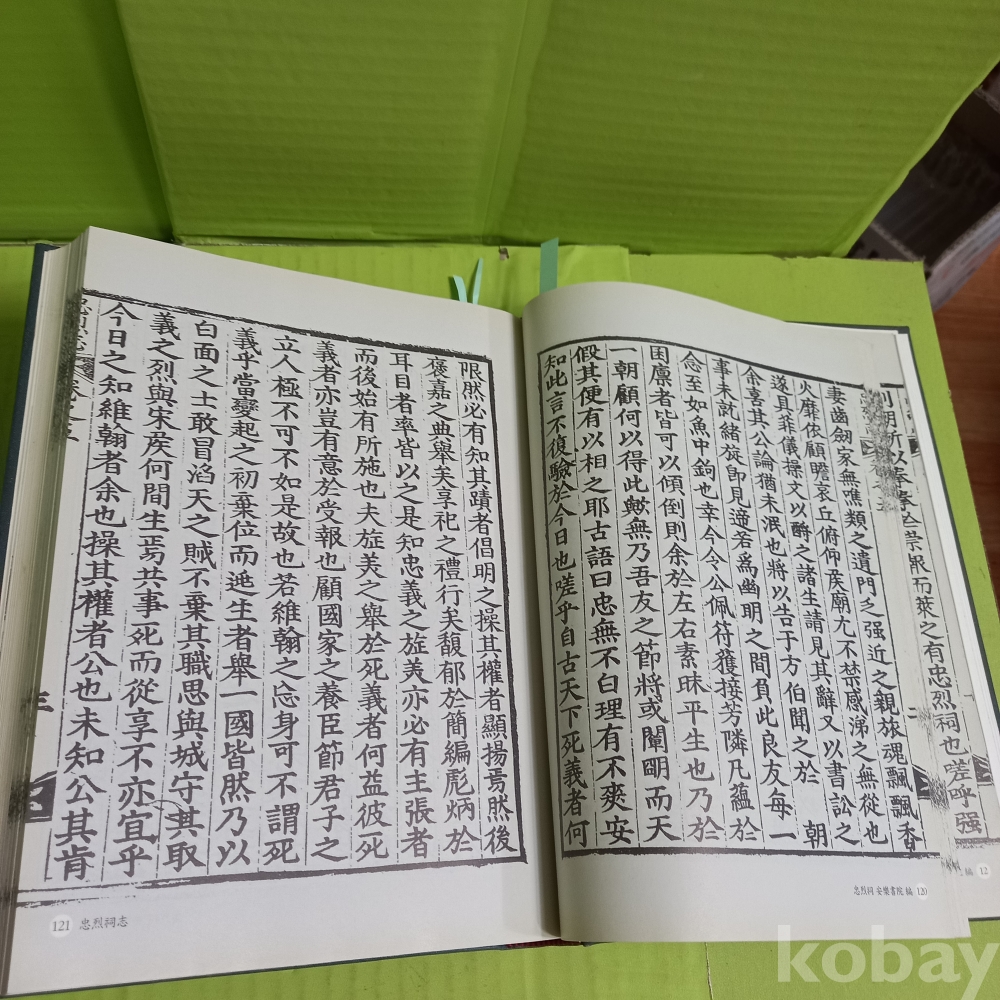 列朝所以
崇報而萊之有忠烈祠也嗟呼强
妻齒劒家無噍類之遺門乏强近之親旅魂飄飄香
火靡依顧瞻哀丘俯仰疾廟尤不禁感涕之無從也
遂具菲儀操文以酹之諸生請見其辭又以書訟之
余喜其公論猶未泯也將以告于方伯聞之於 朝
事未就緒旋卽見遞若爲幽明之間負此良友每一
念至如魚中鉤也幸今令公佩符獲接芳隣凡蘊於
困廩者皆可以傾倒則余於左右素昧平生也乃於
一朝顧何以得此歟無乃吾友之節將或闡明而天
假其便有以相之耶古語曰忠無不白理有不爽安
知此言不復驗於今日也嗟乎自古天下死義者何
限然必有知其蹟者倡明之操其權者顯揚焉然後
褒嘉之典舉美享祀之禮行矣馥郁於簡編彪炳於
耳目者率皆以之是知忠義之㫌美亦必有主張者
而後始有所施也夫㫌美之舉於死義者何益彼死
義者亦豈有意於受報也顧國家之養臣節君子之
立人極不可不如是故也若維翰之忘身可不謂死
義乎當變起之初棄位而逃生者舉一國皆然乃以
白面之士敢冒滔天之賊不棄其職思與城守其取
義之烈與宋矦何間生焉共事死而從享不亦宜乎
今日之知維翰者余也操其權者公也未知公其肯
二
三
忠烈祠 安樂書院 編 120
編 12
121 忠烈祠志
kobay